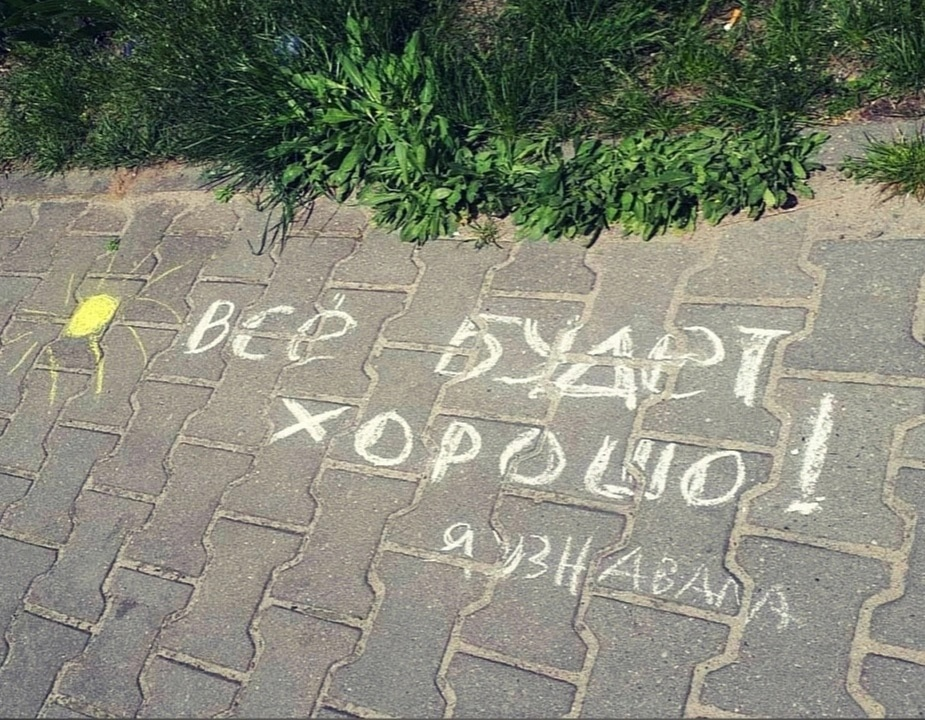 ВСЁ БУДЕТ
ХОРОШО!
Я УЗНАВАЛА